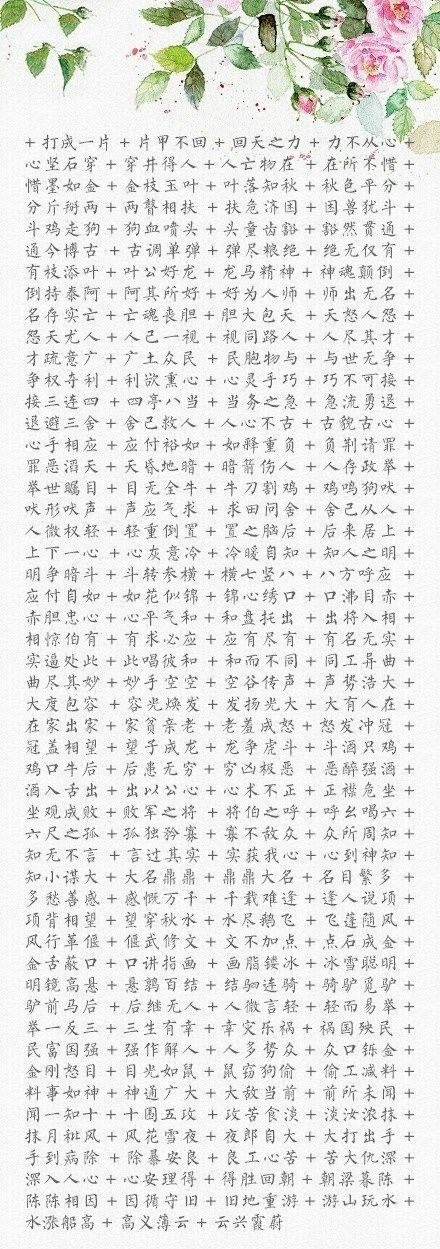 + 打成一片 + 片甲不回 + 回天之力 + 力不从心 +
心坚石穿 + 穿井得人 + 人亡物在 + 在所不惜 +
惜墨如金 + 金枝玉叶 + 叶落知秋 + 秋色平分 +
分斤掰两 + 两瞽相扶 + 扶危济困 + 困兽犹斗 +
斗鸡走狗 + 狗血喷头 + 头童齿豁 + 豁然贯通 +
通今博古 + 古调单弹 + 弹尽粮绝 + 绝无仅有 +
有枝添叶 + 叶公好龙 + 龙马精神 + 神魂颠倒 +
倒持泰阿 + 阿其所好 + 好为人师 + 师出无名 +
名存实亡 + 亡魂丧胆 + 胆大包天 + 天怒人怨 +
怨天尤人 + 人己一视 + 视同路人 + 人尽其才 +
才疏意广 + 广土众民 + 民胞物与 + 与世无争 +
争权夺利 + 利欲熏心 + 心灵手巧 + 巧不可接 +
接三连四 + 四亭八当 + 当务之急 + 急流勇退 +
退避三舍 + 舍己救人 + 人心不古 + 古貌古心 +
心手相应 + 应付裕如 + 如释重负 + 负荆请罪 +
罪恶滔天 + 天昏地暗 + 暗箭伤人 + 人存政举 +
举世瞩目 + 目无全牛 + 牛刀割鸡 + 鸡鸣狗吠 +
吠形吠声 + 声应气求 + 求田问舍 + 舍己从人 +
人微权轻 + 轻重倒置 + 置之脑后 + 后来居上 +
上下一心 + 心灰意冷 + 冷暖自知 + 知人之明 +
明争暗斗 + 斗转参横 + 横七竖八 + 八方呼应 +
应付自如 + 如花似锦 + 锦心绣口 + 口沸目赤 +
赤胆忠心 + 心平气和 + 和盘托出 + 出将入相 +
相惊伯有 + 有求必应 + 应有尽有 + 有名无实 +
实逼处此 + 此唱彼和 + 和而不同 + 同工异曲 +
曲尽其妙 + 妙手空空 + 空谷传声 + 声势浩大 +
大度包容 + 容光焕发 + 发扬光大 + 大有人在 +
在家出家 + 家贫亲老 + 老羞成怒 + 怒发冲冠 +
冠盖相望 + 望子成龙 + 龙争虎斗 + 斗酒只鸡 +
鸡口牛后 + 后患无穷 + 穷凶极恶 + 恶醉强酒 +
酒入舌出 + 出以公心 + 心术不正 + 正襟危坐 +
坐观成败 + 败军之将 + 将伯之呼 + 呼幺喝六 +
六尺之孤 + 孤独矜寡 + 寡不敌众 + 众所周知 +
知无不言 + 言过其实 + 实获我心 + 心到神知 +
知小谋大 + 大名鼎鼎 + 鼎鼎大名 + 名目繁多 +
多愁善感 + 感慨万千 + 千载难逢 + 逢人说项 +
项背相望 + 望穿秋水 + 水尽鹅飞 + 飞蓬随风 +
风行草偃 + 偃武修文 + 文不加点 + 点石成金 +
金舌蔽口 + 口讲指画 + 画脂镂冰 + 冰雪聪明 +
明镜高悬 + 悬鹑百结 + 结驷连骑 + 骑驴觅驴 +
驴前马后 + 后继无人 + 人微言轻 + 轻而易举 +
举一反三 + 三生有幸 + 幸灾乐祸 + 祸国殃民 +
民富国强 + 强作解人 + 人多势众 + 众口铄金 +
金刚怒目 + 目光如鼠 + 鼠窃狗偷 + 偷工减料 +
料事如神 + 神通广大 + 大敌当前 + 前所未闻 +
闻一知十 + 十围五攻 + 攻苦食淡 + 淡妆浓抹 +
抹月秕风 + 风花雪夜 + 夜郎自大 + 大打出手 +
手到病除 + 除暴安良 + 良工心苦 + 苦大仇深 +
深入人心 + 心安理得 + 得胜回朝 + 朝梁暮陈 +
陈陈相因 + 因循守旧 + 旧地重游 + 游山玩水 +
水涨船高 + 高义薄云 + 云兴霞蔚